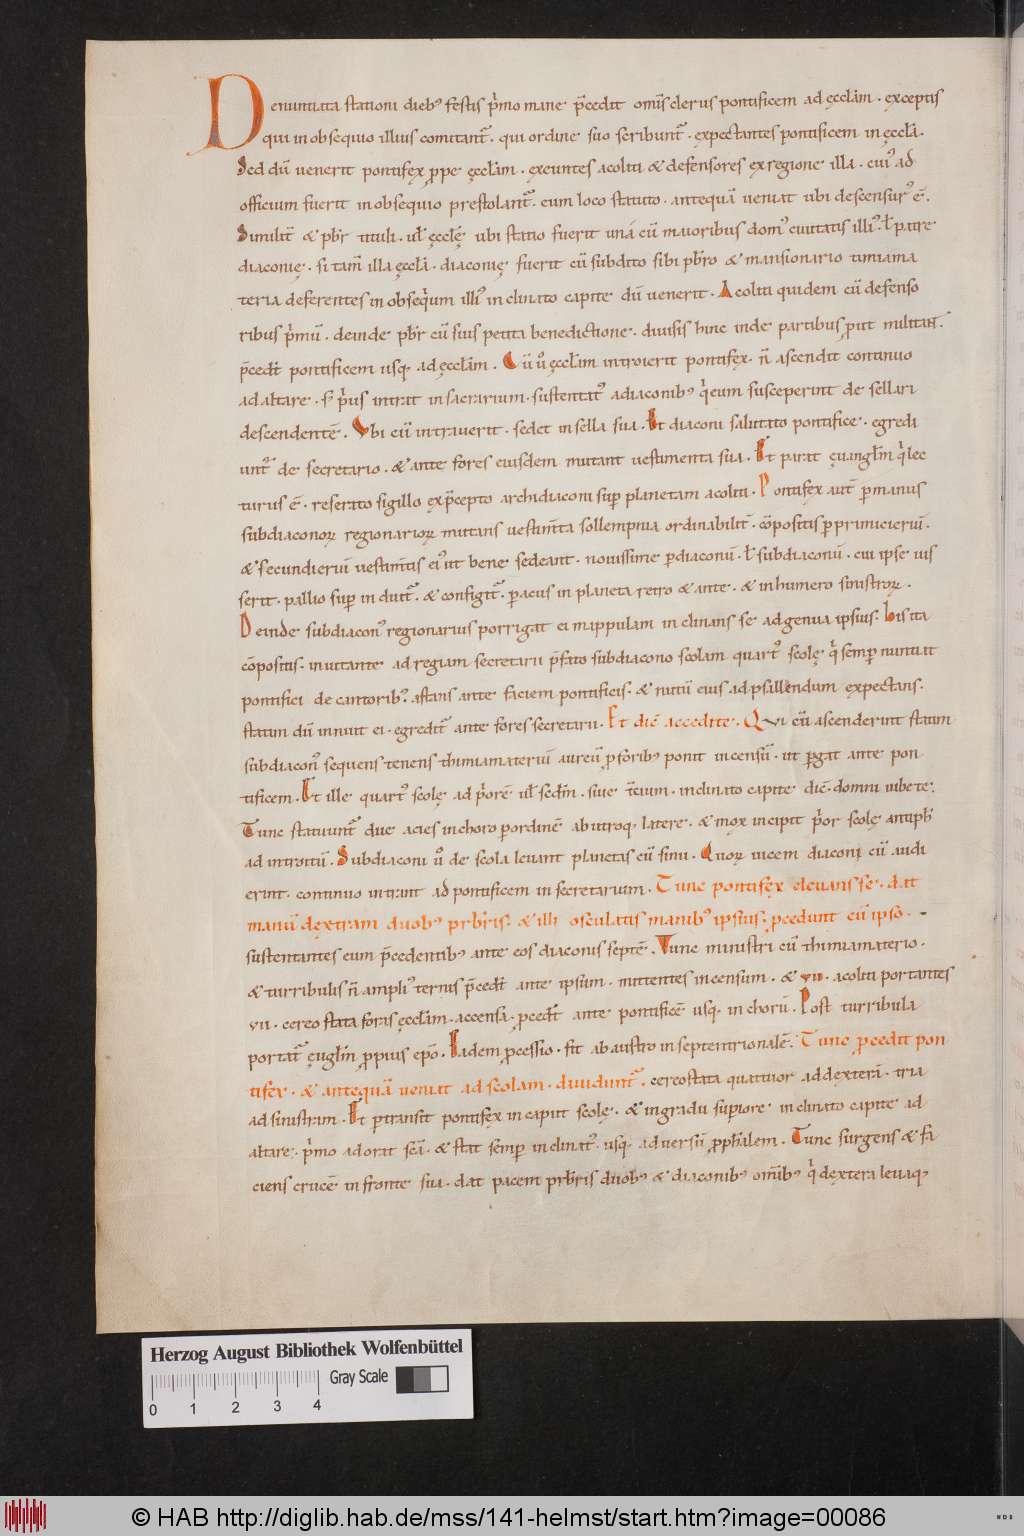 Denuntiata stationi dieb᷒ festis p̄mo mane p̄cedit om̄is clerus pontificem ad ęccl̄am · exceptis
qui in obsequio illius comitant᷑ · qui ordine suo scribunt᷑ · expectantes pontificem in ęccl̄a ·
Sed dū uenerit pontifex ꝓpe ęccl̄am · exeuntes acoliti & defensores ex regione illa · cui᷒ ad
officium fuerit in obsequio prestolant᷑ · eum loco statuto · antequā ueniat ubi descensur᷒ ē ·
Similit̄ & pb̄r tituli · ul̄ ęcclę̄ ubi statio fuerit unā cū maioribus dom᷒ ciuitatis illi᷒ · l̄ patre
diaconię · si tam̄ illa ęccl̄a · diaconię fuerit cū subdito sibi pb̄ro & mansionario timiama
teria deferentes in obseq̄um illi᷒ inclinato capite dū uenerit · Acoliti quidem cū defenso
ribus p̄mū · deinde pb̄r cū suis petita benedictione · diuisis hinc inde partibus ꝓut militant̄ ·
p̄cedūt pontificem usq; ad ęccl̄am · Cū u̾ ęccl̄am introierit pontifex · n̄ ascendit continuo
ad altare · s; p̄us intrat in sacrarium · sustentat᷒ a diaconib᷒ q̄ eum susceperint de sellari
descendentē · Vbi cū intrauerit · sedet in sella sua · Et diaconi salutato pontifice · egredi
unt᷑ de secretario · & ante fores eiusdem mutant uestimenta sua · Et parat ęuangl̄m q̄ lec
turus ē · reserato sigillo ex p̄cepto archidiaconi suꝑ planetam acoliti · Pontifex aut̄ ꝑ manus
subdiaconoꝝ regionarioꝝ mutans uestim̄ta sollempnia ordinabilit̄ · cōpositis ꝑ primicieriū ·
& secundieriū uestim̄tis ei᷒ ut bene sedeant · nouissime ꝑ diaconū · l̄ subdiaconū · cui ipse ius
serit · pallio suꝑ induit᷑ · & configit᷑ · ꝑ acus in planeta retro & ante · & in humero sinistroꝝ ·
Deinde subdiacon᷒ regionarius porrigat ei mappulam inclinans se ad genua ipsius · His ita
cōpositis · inuitante ad regiam secretarii p̄fato subdiacono scolam quart᷒ scolę q̄ semꝑ nuntiat
pontifici de cantorib᷒ · astans ante faciem pontificis · & nutū eius ad psallendum expectans ·
statim dū innuit ei · egredit᷑ ante fores secretarii · Et dic̄ accedite · Qui cū ascenderint statim
subdiacon᷒ sequens tenens thimiamateriū aureū ꝓ forib᷒ ponit incensū · ut ꝑgat ante pon
tificem · Et ille quart᷒ scolę ad p̄orē ul̄ scd̄m · siue t̄cium · inclinato capite dic̄ · domni iubete ·
Tunc statuunt᷑ due acies in choro ꝑ ordinē ab utroq; latere · & mox incipit p̄or scolę antiph̄
ad introitū · Subdiaconi u̾ de scola leuant planetas cū sinu · Quoꝝ uicem diaconi cū audi
erint · continuo intrant ad pontificem in secretarium · Tunc pontifex eleuans se · dat
manū dextram duob᷒ prb̄ris · & illi osculatis manib᷒ ipsius · ꝓcedunt cū ipso ·
sustentantes eum p̄cedentib᷒ ante eos diaconis septē · Tunc ministri cū thimiamaterio ·
& turribulis n̄ ampli᷒ ternis p̄cedūt ante ipsum · mittentes incensum · & vii · acoliti portantes
vii · cereostata foras ęccl̄am · accensa · ꝓcedūt ante pontificē usq; in chorū · Post turribula
portat᷑ ęuglīm ꝓpius ep̄o · Eadem ꝓcessio · fit ab austro in septentrionalē · Tunc ꝓcedit pon
tifex · & antequā ueniat ad scolam · diuidunt᷑ · cereostata quatuor ad dexterā · tria
ad sinistram · Et ꝑtransit pontifex in caput scolę · & in gradu suꝑiore inclinato capite ad
altare · p̄mo adorat scā · & stat semꝑ inclinat᷒ · usq; ad uersū ꝓph̄alem · Tunc surgens & fa
ciens crucē in fronte sua · dat pacem prb̄ris duob᷒ & diaconib᷒ om̄ib᷒ q̄ dextera leuaq;
Herzog August Bibliothek Wolfenbüttel
Gray Scale
0 1 2 3 4
© HAB http://diglib.hab.de/mss/141-helmst/start.htm?image=00086